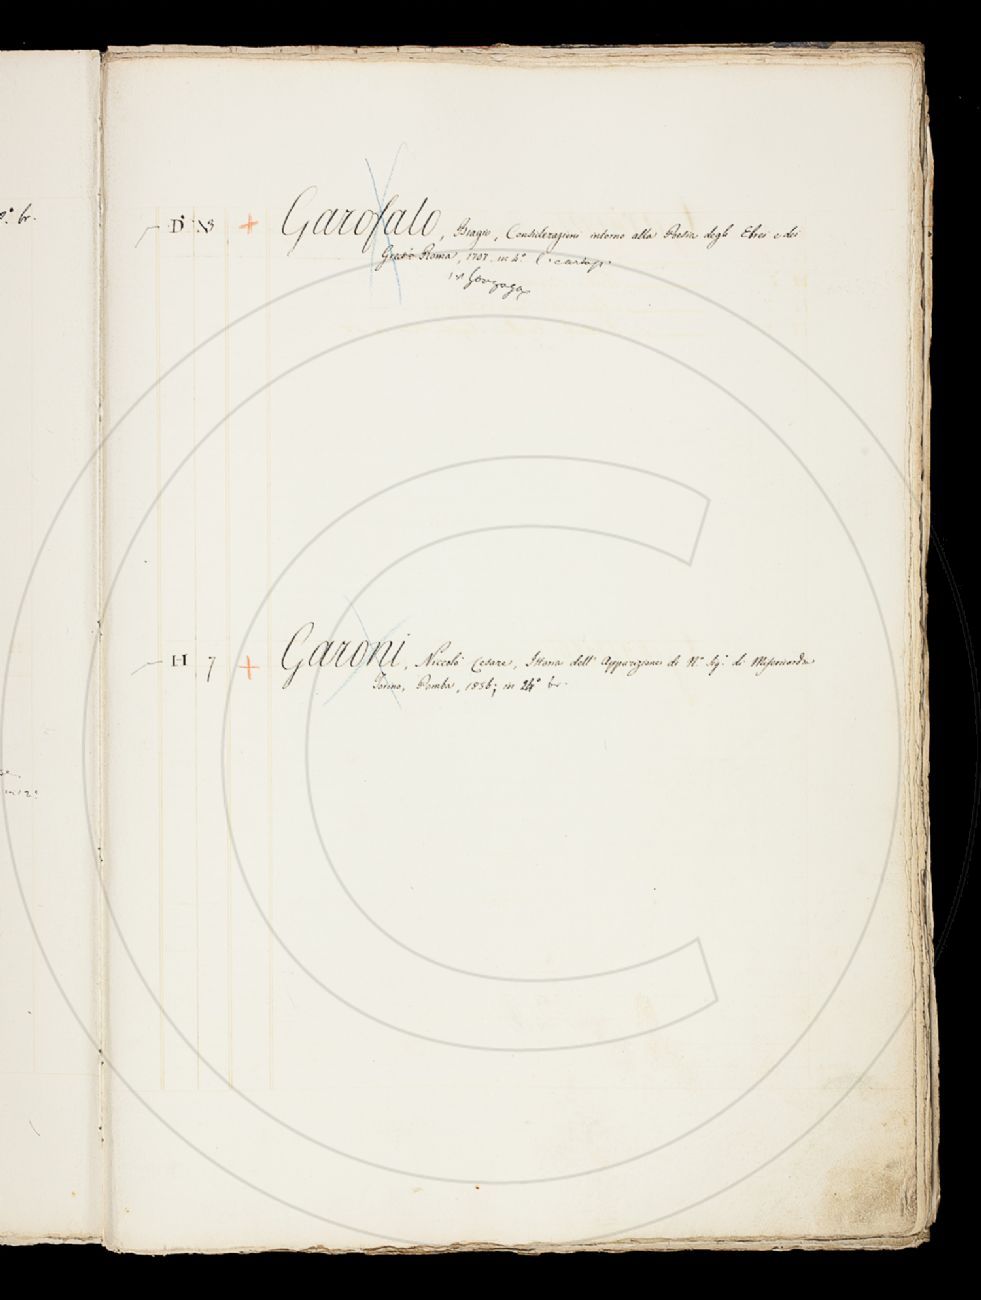 8.° br.
D. N3 + Garofalo, Biagio, Considerazioni intorno alla Poesia degli Ebrei e dei
Greci. Roma, 1707. in 4.°
Gonzaga
H 7 + Garoni, Niccolò Cesare, Istoria dell' Apparizione di N.a Sig.a di Misericordia
Torino, Pomba, 1836; in 24° br.
in 12°